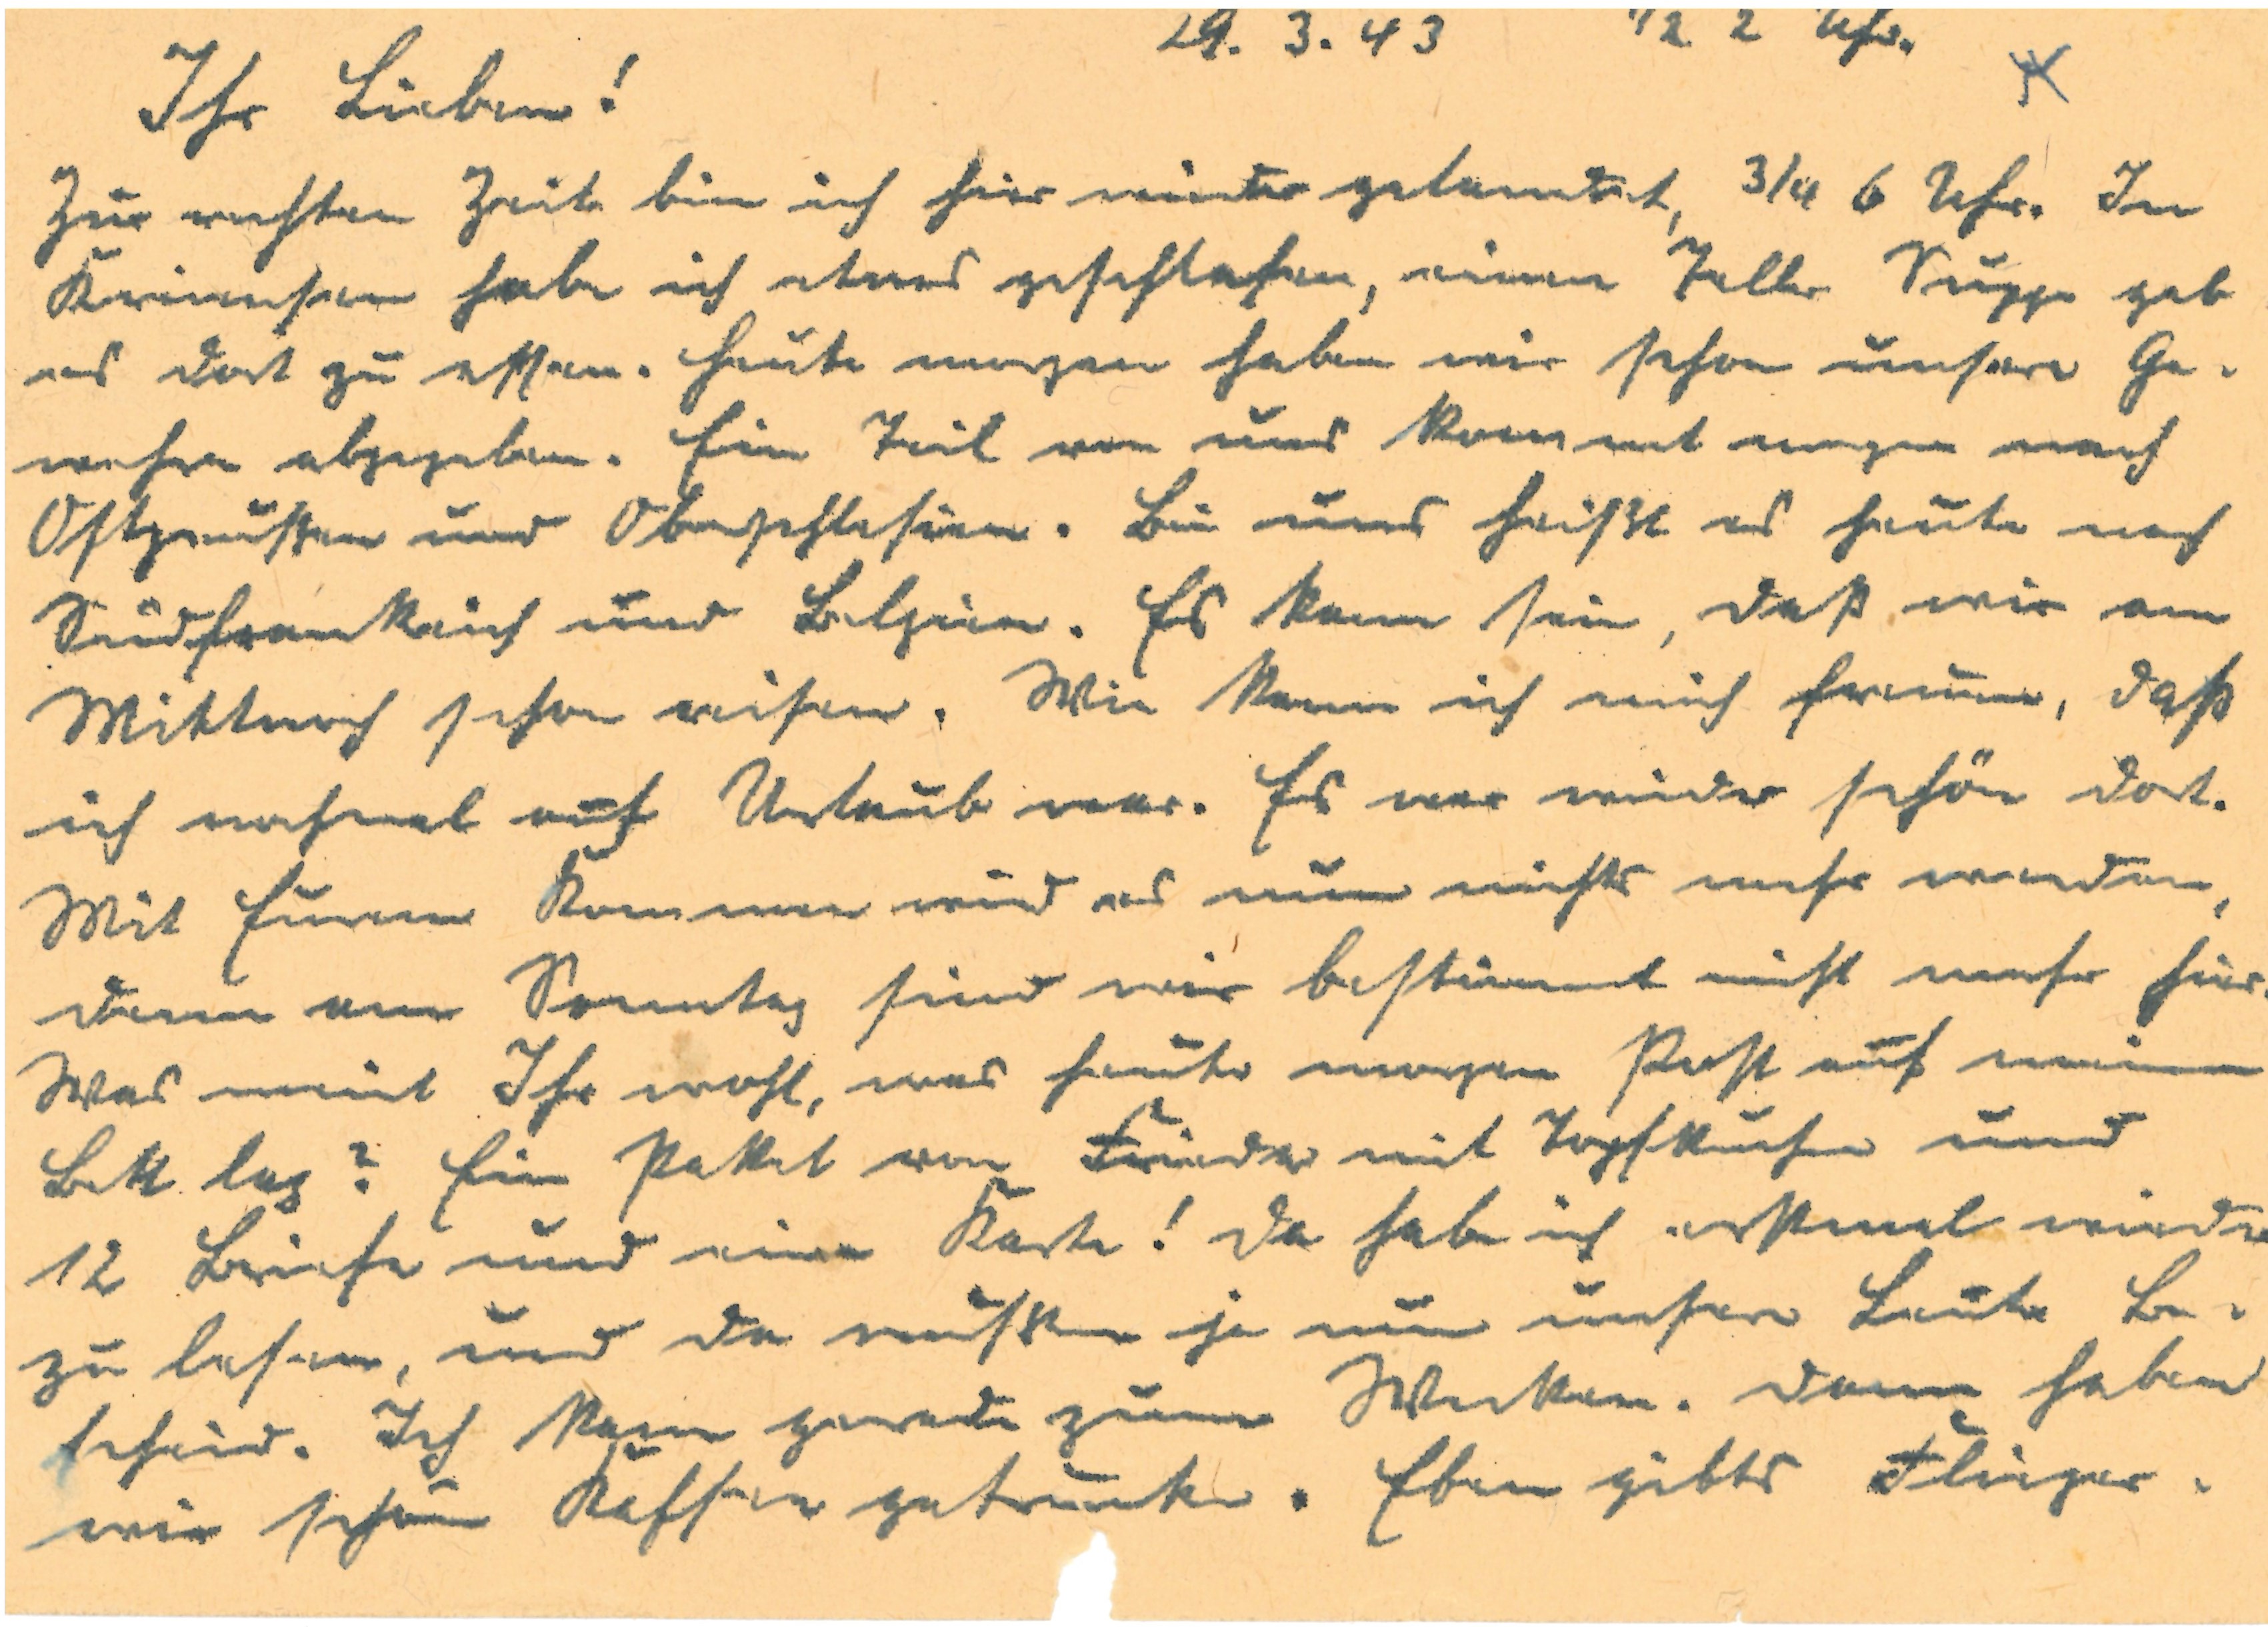 29. 3. 43 1/2 2 Uhr.
Ihr Lieben!
Zur rechten Zeit bin ich hier wieder gelandet, 3/4 6 Uhr. In
Kreiensen habe ich etwas geschlafen, einen Teller Suppe gab
es dort zu essen. Heute morgen haben wir schon unsere Ge-
wehre abgegeben. Ein Teil von uns kommt morgen nach
Ostpreußen und Oberschlesien. Bei uns heißt es heute nach
Südfrankreich und Belgien. Es kann sein, daß wir am
Mittwoch schon reisen. Wie kann ich mich freuen, daß
ich nochmal auf Urlaub war. Es war wieder schön dort.
Mit Eurem Kommen wird es nun nichts mehr werden,
denn am Sonntag sind wir bestimmt nicht mehr hier.
Was meint Ihr wohl, was heute morgen Post auf meinem
Bett lag? Ein Pakket von Frieda mit Topfkuchen und
12 Briefe und eine Karte! Da habe ich erstmal wieder
zu lesen, und da wußten ja nun unsere Leute Be-
scheid. Ich kam gerade zum Wecken. Dann haben
wir schön Kaffee getrunken. Eben gibts Flieger-